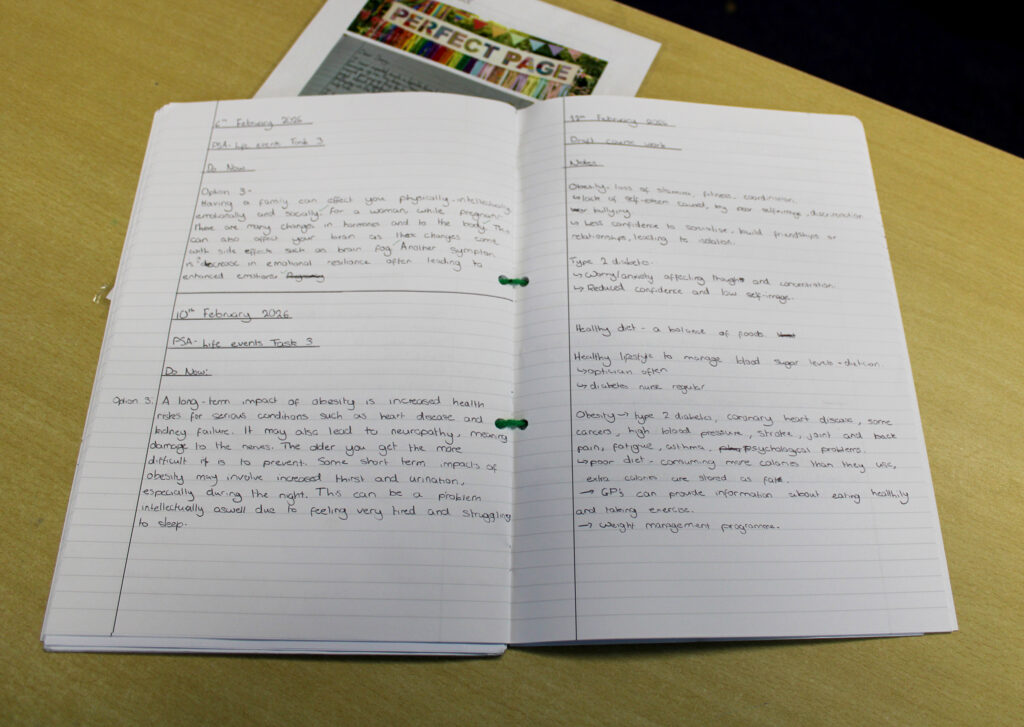 PERFECT PAGE
6th February 2026
PSA- Life events Task 3
Do Now
Option 3-
Having a family can effect you physically, intellectually,
emotionally and socially. For a woman, while pregnant
there are many changes in hormones and to the body. This
can also affect your brain as these changes come
with side effects such as brain fog. Another symptom
is "decrease in emotional resiliance often leading to
enhanced emotions"
10th February 2026
PSA- Life events Task 3
Do Now:
Option 3: A long-term impact of obesity is increased health
risks for serious conditions such as heart disease and
kidney failure. It may also lead to neuropathy, meaning
damage to the nerves. The older you get the more
difficult it is to prevent. Some short term impacts of
obesity may involve increased thirst and urination,
especially during the night. This can be a problem
intellectually aswell due to feeling very tired and struggling
to sleep.
February 2026
Draft course work
Notes:
Obesity- loss of stamina, fitness, coordination.
↳ lack of self-esteem caused, by poor self-image, discrimination
or bullying.
↳ Less confidence to socialise, build friendships or
relationships, leading to isolation.
Type 2 diabetes-
↳ Worry/anxiety affecting thought and concentration.
↳ Reduced confidence and low self-image.
Healthy diet - a balance of foods.
Healthy lifestyle to manage blood sugar levels - dietician
↳ optician often
↳ diabetes nurse regular
Obesity → type 2 diabetes, coronary heart disease, some
cancers, high blood pressure, stroke, joint and back
pain, fatigue, asthma, psychological problems.
↳ poor diet - consuming more calories than they use,
extra calories are stored as fats.
→ GP's can provide information about eating healthily
and taking exercise.
→ weight management programme.